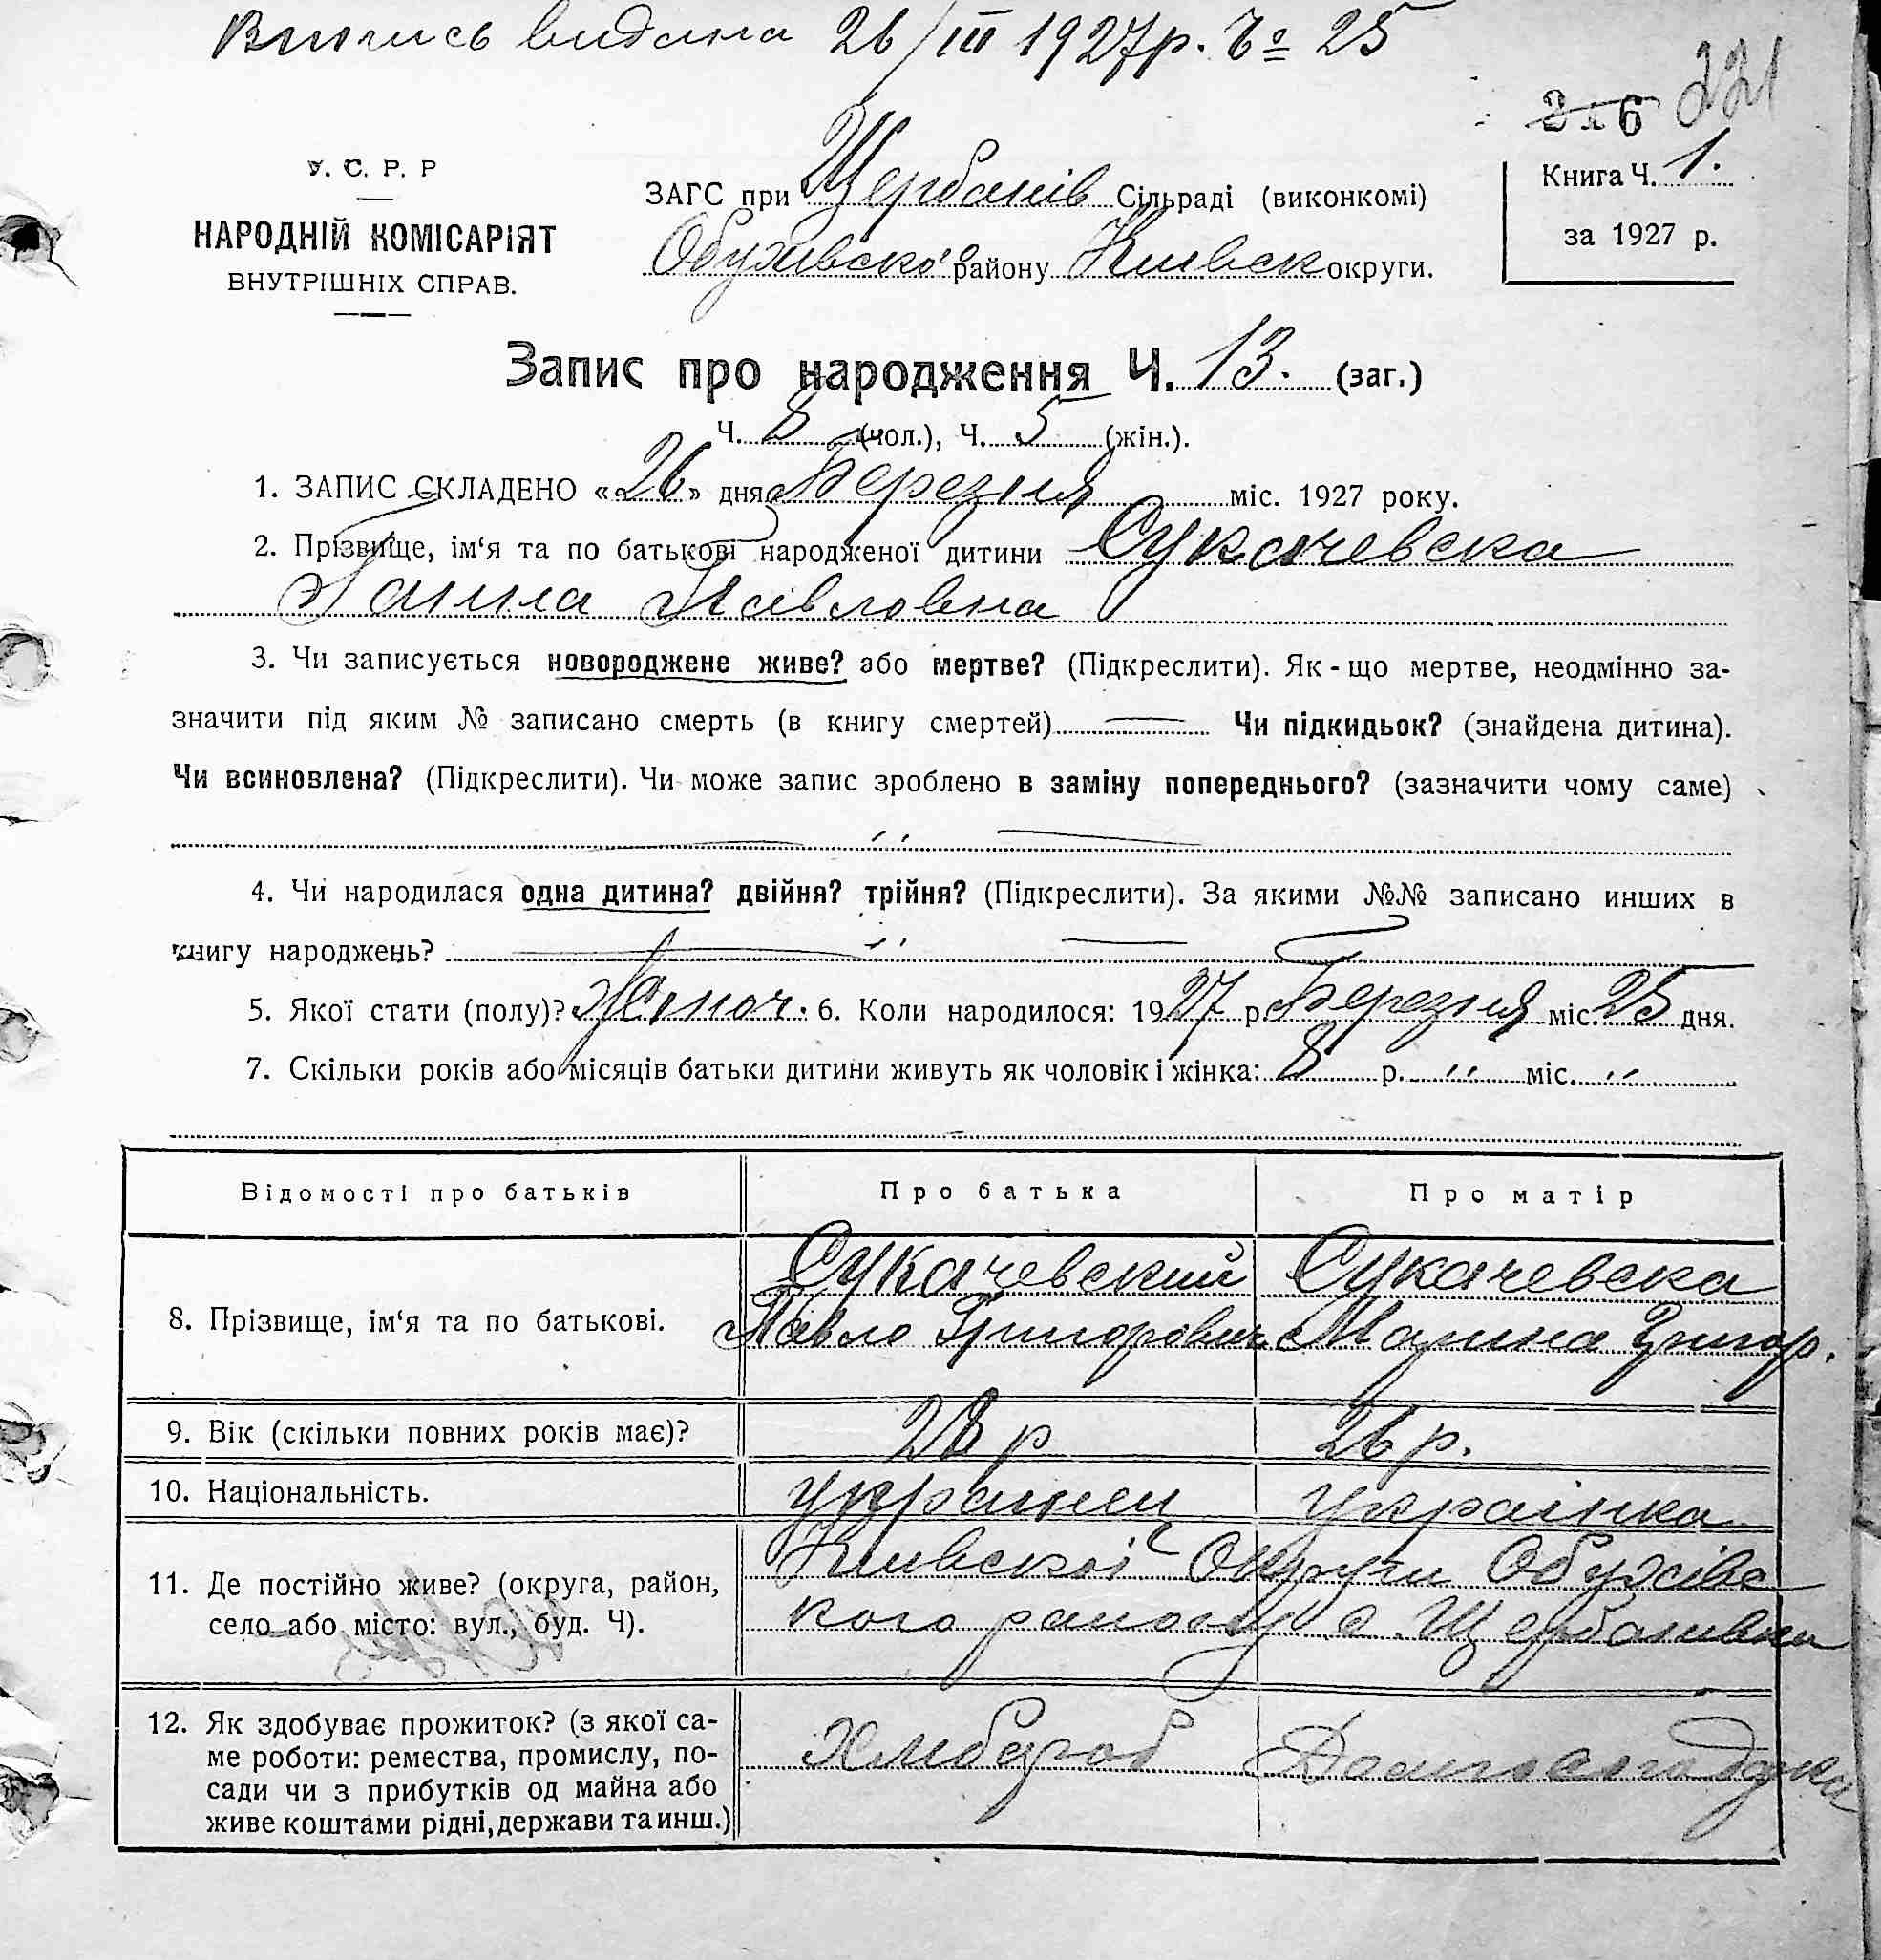 Випись видана 26/III 1927р. Чо 25
216 221
У. С. Р. Р
НАРОДНІЙ КОМІСАРІЯТ
ВНУТРІШНІХ СПРАВ.
ЗАГС при Щербанів Сільраді (виконкомі)
Обухівско района Київск округи.
Книга Ч. 1.
за 1927 р.
Запис про народження Ч. 13. (заг.)
Ч. 8 (чол.), Ч. 5 (жін.).
1. ЗАПИС СКЛАДЕНО «26» дня Березня міс. 1927 року.
2. Прізвище, ім‘я та по батькові народженої дитини Сукачевска
Ганна Павловна
3. Чи записується новороджене живе? або мертве? (Підкреслити). Як-що мертве, неодмінно за-
значити під яким № записано смерть (в книгу смертей) — Чи підкидьок? (знайдена дитина).
Чи всиновлена? (Підкреслити). Чи може запис зроблено в заміну попереднього? (зазначити чому саме)
— ,, —
4. Чи народилася одна дитина? двійня? трійня? (Підкреслити). За якими №№ записано инших в
книгу народжень? — ,, —
5. Якої стати (полу)? Жіноч. 6. Коли народилося: 1927 р. Березня міс. 25 дня.
7. Скільки років або місяців батьки дитини живуть як чоловік і жінка: 8 р. ,, міс. ,,
Відомості про батьків Про батька Про матір
8. Прізвище, ім‘я та по батькові. Сукачевский Сукачевска
Павло Григорович Марина Григор.
9. Вік (скільки повних років має)? 28 р 26 р.
10. Національність. украинец українка
11. Де постійно живе? (округа, район, Киівскоі Округи Обухівс
село або місто: вул., буд. Ч). кого району с. Щербанивки
12. Як здобуває прожиток? (з якої са- Хлібороб Домогосподарка
ме роботи: ремества, промислу, по-
сади чи з прибутків од майна або
живе коштами рідні, держави та инш.)